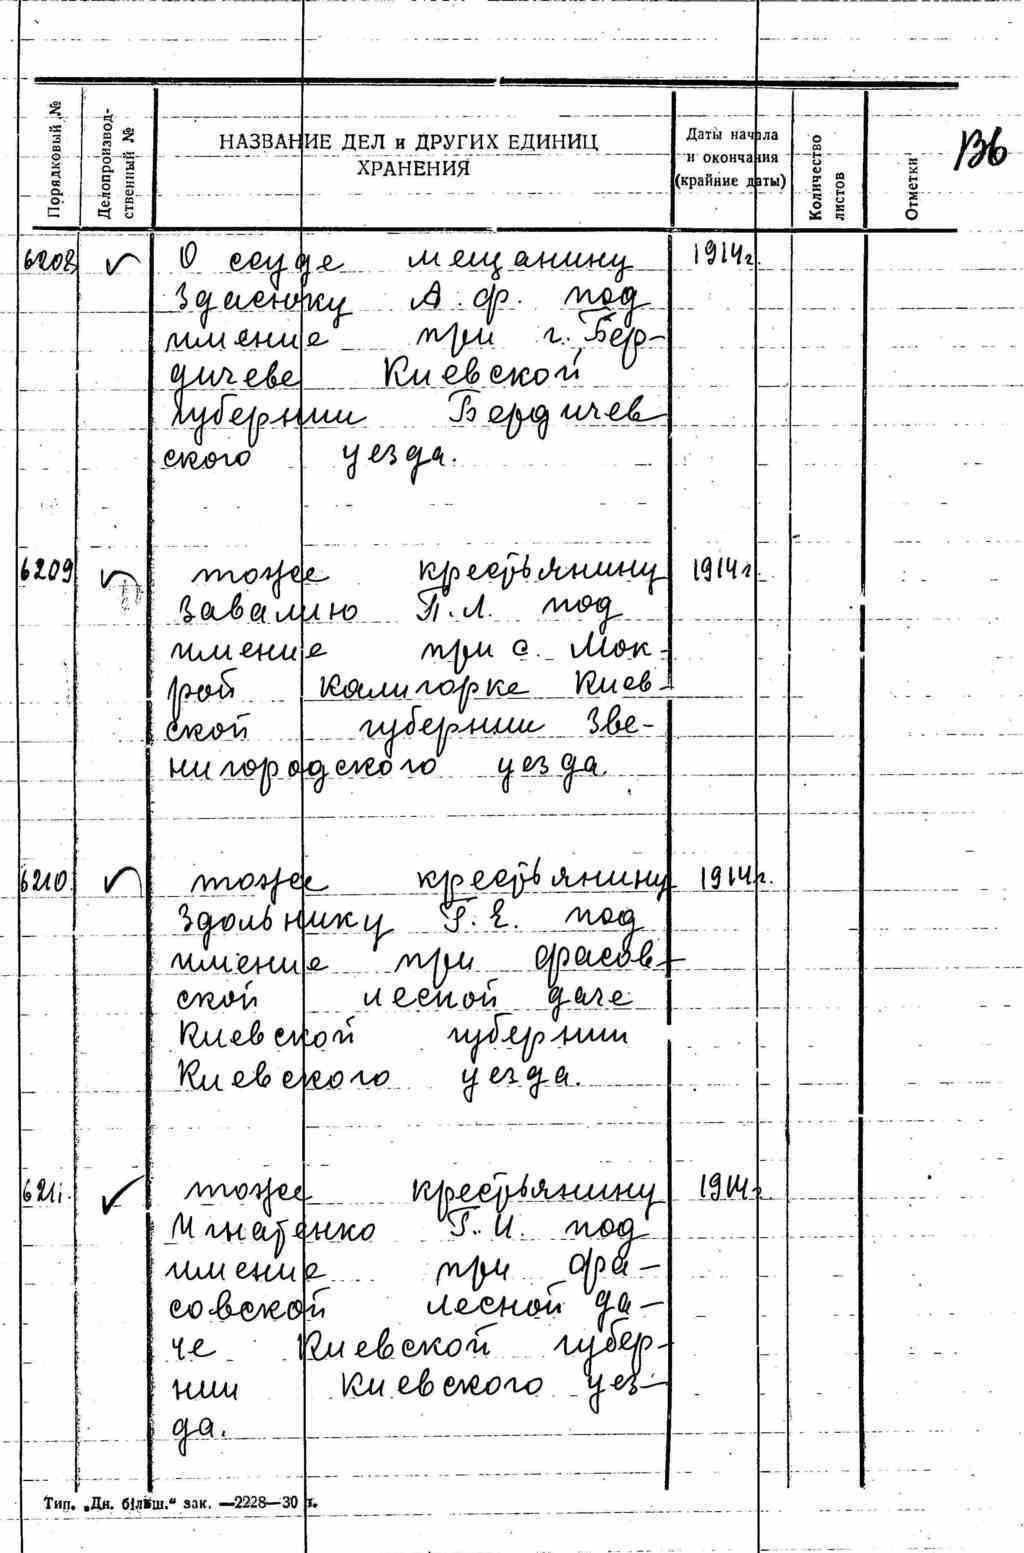 Порядковый №
Делопроизвод-
ственный №
НАЗВАНИЕ ДЕЛ и ДРУГИХ ЕДИНИЦ
ХРАНЕНИЯ
Даты начала
и окончания
(крайние даты)
Количество
листов
Отметки
136
6208 О ссуде мещанину 1914г.
Здасюку А. Ф. под
имение при г. Бер-
дичеве Киевской
губернии Бердичев
ского уезда.
6209 тоже крестьянину 1914г.
Завалию П. Л. под
имение при с. Мок-
рой Калигорке Киев-
ской губернии Зве-
нигородского уезда.
6210. тоже крестьянину 1914г.
Здольнику Г. Е. под
имение при Фасов-
ской лесной даче
Киевской губернии
Киевского уезда.
6211. тоже крестьянину 1914г.
Игнатенко Г. И. под
имение при Фа-
совской лесной да-
че Киевской губер-
нии Киевского уез-
да.
Тип. „Дн. більш.“ зак. —2228—30 г.